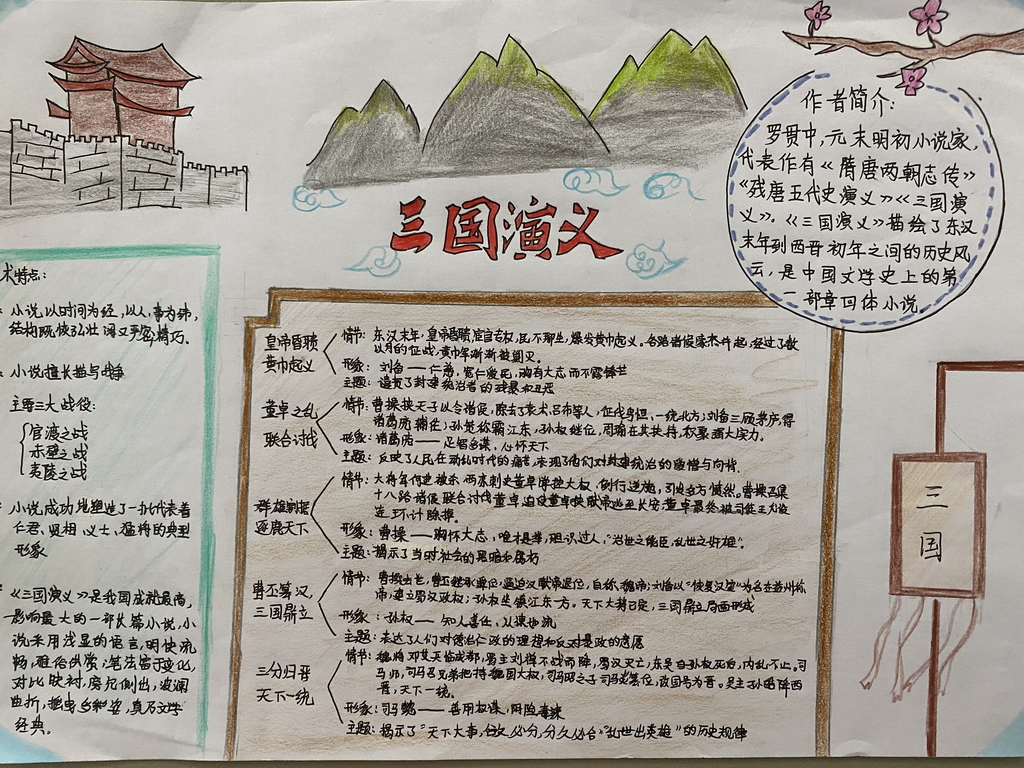 三国演义
作者简介:
罗贯中,元末明初小说家,
代表作有《隋唐两朝志传》
《残唐五代史演义》《三国演
义》。《三国演义》描绘了东汉
末年到西晋初年之间的历史风
云,是中国文学史上的第
一部章回体小说。
术特点:
小说,以时间为经,以人,事为纬,
结构既恢弘壮阔又严密精巧。
小说擅长描写战争
主要三大战役:
官渡之战
赤壁之战
夷陵之战
小说成功地塑造了一批代表着
仁君、贤相、义士、猛将的典型
形象
《三国演义》是我国成就最高,
影响最大的一部长篇小说,小
说采用浅显的语言,明快流
畅,雅俗共赏;笔法富于变化,
对比映衬,旁冗侧出,波澜
曲折,摇曳多姿,真乃文学
经典。
皇帝昏聩
黄巾起义
情节:东汉末年,皇帝昏聩,宦官专权,民不聊生,爆发黄巾起义。各路诸侯豪杰并起,经过了数
以月的征战,黄巾军渐渐被剿灭。
形象:刘备——仁弟,宽仁爱民,胸有大志而不露锋芒
主题:谴责了封建统治者的残暴和丑恶
董卓之乱
联合讨战
情节:曹操挟天子以令诸侯,除去了袁术、吕布等人,征伐乌桓,一统北方;刘备三顾茅庐,得
诸葛亮辅佐;孙坚称霸江东,孙权继位,周瑜在其扶持,积聚强大实力。
形象:诸葛亮——足智多谋,心怀天下
主题:反映了人民在动乱时代的痛苦,表现了他们对封建统治的爱憎与向背。
群雄割据
逐鹿天下
情节:大将军何进被杀,西凉刺史董卓掌控大权,倒行逆施,引发四方愤然。曹操召集
十八路诸侯联合讨伐董卓,迫使董卓挟献帝逃至长安;董卓最终被司徒王允设
连环计除掉。
形象:曹操——胸怀大志,唯才是举,胆识过人,“治世之能臣,乱世之奸雄”。
主题:揭示了当时社会的黑暗和腐朽
曹丕篡汉,
三国鼎立
情节:曹操出世,曹丕继承爵位,逼迫汉献帝退位,自称魏帝;刘备以“恢复汉室”为名在益州称
帝,建立蜀汉政权;孙权坐镇江东一方。天下大势已定,三国鼎立局面形成
形象:孙权——知人善任,从谏如流
主题:表达了人们对德治仁政的理想和反对暴政的意愿
三分归晋
天下一统
情节:魏将邓艾兵临成都,蜀主刘禅不战而降,蜀汉灭亡;东吴自孙权死后,内乱不止。司
马师,司马昭兄弟把持魏国大权,司马昭之子司马炎篡位,改国号为晋。吴主孙皓降西
晋,天下一统。
形象:司马懿——善用权谋,阴险毒辣
主题:揭示了“天下大事,合久必分,分久必合”“乱世出英雄”的历史规律
三
国